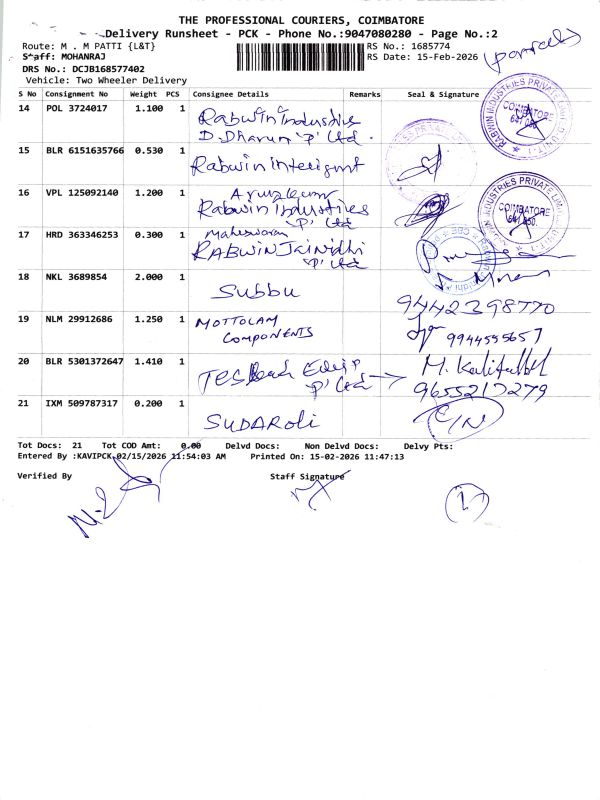 THE PROFESSIONAL COURIERS, COIMBATORE
Delivery Runsheet - PCK - Phone No.:9047080280 - Page No.:2
Route: M . M PATTI {L&T}
RS No.: 1685774
(parcel)
Staff: MOHANRAJ
RS Date: 15-Feb-2026
DRS No.: DCJB168577402
Vehicle: Two Wheeler Delivery
S No Consignment No Weight PCS Consignee Details Remarks Seal & Signature
14 POL 3724017 1.100 1 Rabwin Industries
D. Dharun 'P' Ltd.
RABWIN INDUSTRIES PRIVATE LIMITED
COIMBATORE
641 050
15 BLR 6151635766 0.530 1 Rabwin
16 VPL 125092140 1.200 1
Rabwin Industries
'P' Ltd
INDUSTRIES PRIVATE LIMITED
COIMBATORE
641 050
17 HRD 363346253 0.300 1 Maheswaran
RABWIN Jainidhi
'P' Ltd
18 NKL 3689854 2.000 1 Subbu
9442398770
19 NLM 29912686 1.250 1 MOTTOLAM
COMPONENTS
9944555657
20 BLR 5301372647 1.410 1
P' Ltd
M.
9655217279
21 IXM 509787317 0.200 1 SUDAROLI
Tot Docs: 21 Tot COD Amt: 0.00 Delvd Docs: Non Delvd Docs: Delvy Pts:
Entered By :KAVIPCK 02/15/2026 11:54:03 AM Printed On: 15-02-2026 11:47:13
Verified By Staff Signature